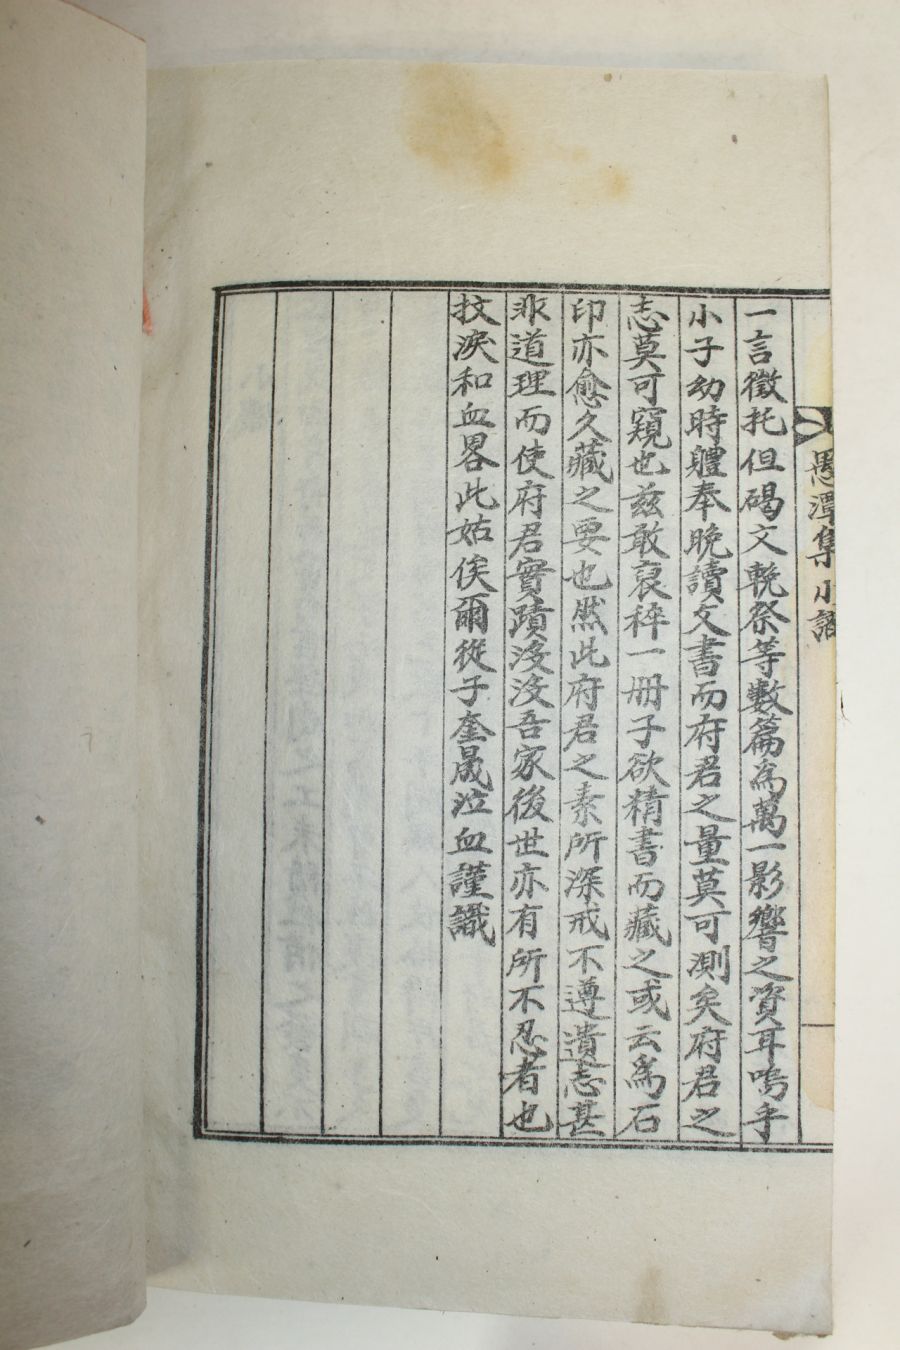 愚潭集小識
一言徵托但碣文輓祭等數篇爲萬一影響之資耳嗚乎
小子幼時軆奉晩讀文書而府君之量莫可測矣府君之
志莫可窺也玆敢裒稡一冊子欲精書而藏之或云爲石
印亦愈久藏之要也然此府君之素所深戒不遵遺志甚
非道理而使府君實蹟沒沒吾家後世亦有所不忍者也
抆淚和血畧此姑俟爾從子奎晟泣血謹識